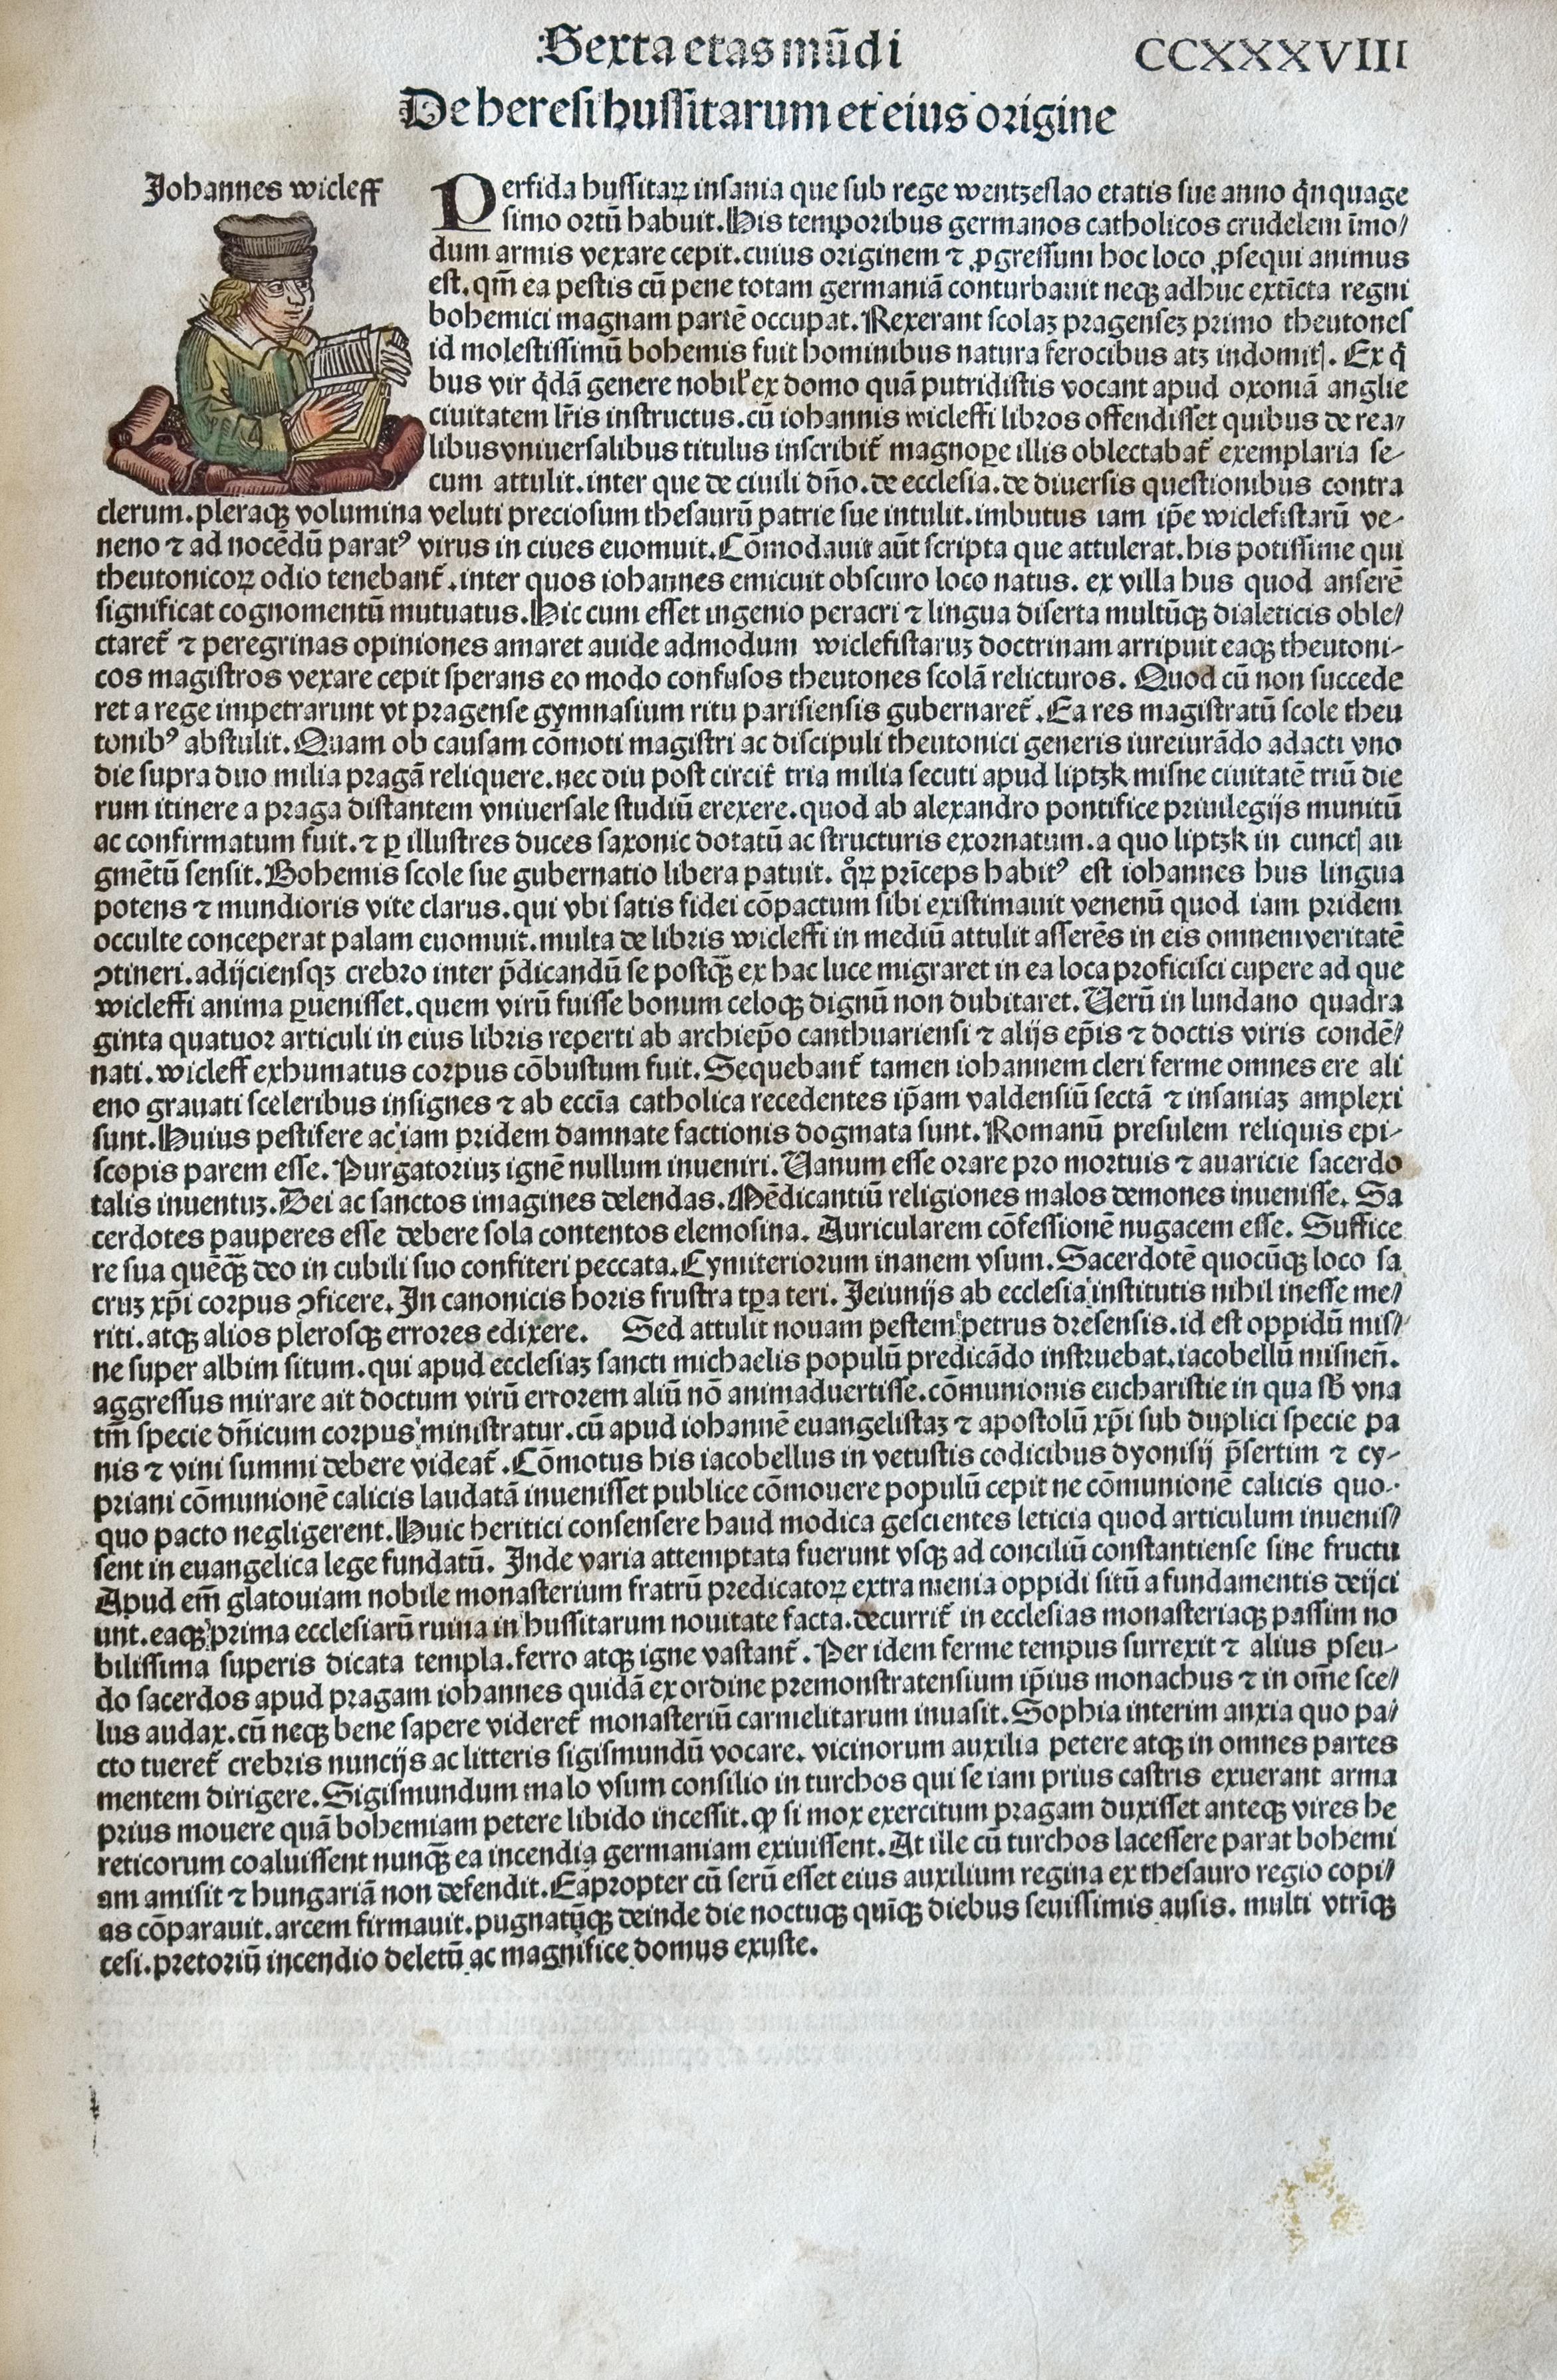 Sexta etas mūdi CCXXXVIII
De heresi hussitarum et eius origine
Johannes wicleff
Perfida hussitaꝝ insania que sub rege wentzeslao etatis sue anno q̄nquage
simo ortū habuit. His temporibus germanos catholicos crudelem īmo/
dum armis vexare cepit. cuius originem ⁊ ꝓgressum hoc loco ꝓsequi animus
est. qm̄ ea pestis cū pene totam germaniā conturbauit neqꝫ adhuc extīcta regni
bohemici magnam partē occupat. Rexerant scolaꝫ pragenseꝫ primo theutones
id molestissimū bohemis fuit hominibus natura ferocibus atꝫ indomitꝭ. Ex q̄
bus vir q̄dā genere nobil' ex domo quā putridistis vocant apud oxoniā anglie
ciuitatem lr̄is instructus. cū iohannis wicleffi libros offendisset quibus de rea/
libus vniuersalibus titulus inscribit̄ magnoꝑe illis oblectabat̄ exemplaria se-
cum attulit. inter que de ciuili dn̄o. de ecclesia. de diuersis questionibus contra
clerum. pleraqꝫ volumina veluti preciosum thesaurū patrie sue intulit. imbutus iam ip̄e wiclefistarū ve-
neno ⁊ ad nocēdū paratꝰ virus in ciues euomuit. Cōmodauit aūt scripta que attulerat. his potissime qui
theutonicoꝝ odio tenebant̄. inter quos iohannes emicuit obscuro loco natus. ex villa hus quod anserē
significat cognomentū mutuatus. Hic cum esset ingenio peracri ⁊ lingua diserta multūqꝫ dialeticis oble/
ctaret̄ ⁊ peregrinas opiniones amaret auide admodum wiclefistaruꝫ doctrinam arripuit eaqꝫ theutoni-
cos magistros vexare cepit sperans eo modo confusos theutones scolā relicturos. Quod cū non succede
ret a rege impetrarunt vt pragense gymnasium ritu parisiensis gubernaret̄. Ea res magistratū scole theu
tonibꝰ abstulit. Quam ob causam cōmoti magistri ac discipuli theutonici generis iureiurādo adacti vno
die supra duo milia pragā reliquere. nec diu post circit̄ tria milia secuti apud liptzk misne ciuitatē triū die
rum itinere a praga distantem vniuersale studiū erexere. quod ab alexandro pontifice priuilegijs munitū
ac confirmatum fuit. ⁊ ꝑ illustres duces saxonie dotatū ac structuris exornatum. a quo liptzk in cunctꝭ au
gmētū sensit. Bohemis scole sue gubernatio libera patuit. q̊ꝝ prīceps habitꝰ est iohannes hus lingua
potens ⁊ mundioris vite clarus. qui vbi satis fidei cōpactum sibi existimauit venenū quod iam pridem
occulte conceperat palam euomuit. multa de libris wicleffi in mediū attulit asserēs in eis omnem veritatē
ꝯtineri. adijciensqꝫ crebro inter p̄dicandū se postq̄ꝫ ex hac luce migraret in ea loca proficisci cupere ad que
wicleffi anima ꝑuenisset. quem virū fuisse bonum celoqꝫ dignū non dubitaret. Verū in lundano quadra
ginta quatuor articuli in eius libris reperti ab archiep̄o canthuariensi ⁊ alijs ep̄is ⁊ doctis viris condē/
nati. wicleff exhumatus corpus cōbustum fuit. Sequebant̄ tamen iohannem cleri ferme omnes ere ali
eno grauati sceleribus insignes ⁊ ab eccīa catholica recedentes ip̄am valdensiū sectā ⁊ insaniaꝫ amplexi
sunt. Huius pestifere ac iam pridem damnate factionis dogmata sunt. Romanū presulem reliquis epi-
scopis parem esse. Purgatoriuꝫ ignē nullum inueniri. Vanum esse orare pro mortuis ⁊ auaricie sacerdo
talis inuentuꝫ. Dei ac sanctos imagines delendas. Mēdicantiū religiones malos demones inuenisse. Sa
cerdotes pauperes esse debere sola contentos elemosina. Auricularem cōfessionē nugacem esse. Suffice
re sua quēq̄ꝫ deo in cubili suo confiteri peccata. Cymiteriorum inanem vsum. Sacerdotē quocūqꝫ loco sa
cruꝫ xp̄i corpus ꝯficere. In canonicis horis frustra tꝑa teri. Jeiunijs ab ecclesia institutis nihil inesse me/
riti. atqꝫ alios plerosqꝫ errores edixere. Sed attulit nouam pestem petrus dresensis. id est oppidū mis/
ne super albim situm. qui apud ecclesiaꝫ sancti michaelis populū predicādo instruebat. iacobellū misnen̄.
aggressus mirare ait doctum virū errorem aliū nō animaduertisse. cōmunionis eucharistie in qua sb̄ vna
tm̄ specie dn̄icum corpus ministratur. cū apud iohannē euangelistaꝫ ⁊ apostolū xp̄i sub duplici specie pa
nis ⁊ vini summi debere videat̄. Cōmotus his iacobellus in vetustis codicibus dyonisij p̄sertim ⁊ cy-
priani cōmunionē calicis laudatā inuenisset publice cōmouere populū cepit ne cōmunionē calicis quo-
quo pacto negligerent. Huic heritici consensere haud modica gescientes leticia quod articulum inuenis/
sent in euangelica lege fundatū. Inde varia attemptata fuerunt vsqꝫ ad conciliū constantiense sine fructu
Apud em̄ glatouiam nobile monasterium fratrū predicatoꝝ extra menia oppidi sitū a fundamentis deijci
unt. eaqꝫ prima ecclesiarū ruina in hussitarum nouitate facta. decurrit̄ in ecclesias monasteriaqꝫ passim no
bilissima superis dicata templa. ferro atqꝫ igne vastant̄. Per idem ferme tempus surrexit ⁊ alius pseu-
do sacerdos apud pragam iohannes quidā ex ordine premonstratensium ip̄ius monachus ⁊ in om̄e sce/
lus audax. cū neqꝫ bene sapere videret̄ monasteriū carmelitarum inuasit. Sophia interim anxia quo pa/
cto tueret̄ crebris nuncijs ac litteris sigismundū vocare. vicinorum auxilia petere atqꝫ in omnes partes
mentem dirigere. Sigismundum malo vsum consilio in turchos qui se iam prius castris exuerant arma
prius mouere quā bohemiam petere libido incessit. ꝙ si mox exercitum pragam duxisset anteqꝫ vires he
reticorum coaluissent nunq̄ꝫ ea incendia germaniam exiuissent. At ille cū turchos lacessere parat bohemi
am amisit ⁊ hungariā non defendit. Eapropter cū serū esset eius auxilium regina ex thesauro regio copi/
as cōparauit. arcem firmauit. pugnatūqꝫ deinde die noctuqꝫ quīqꝫ diebus seuissimis ausis. multi vtrīqꝫ
cesi. pretoriū incendio deletū ac magnifice domus exuste.